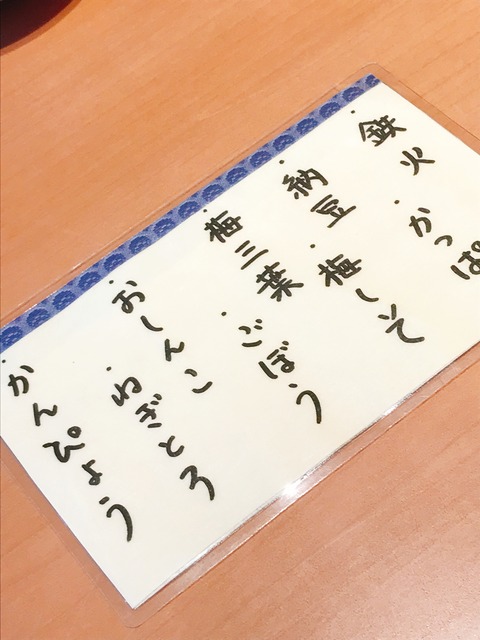 ・鉄火・かっぱ
・納豆・梅しそ
・梅三葉・ごぼう
・おしんこ・ねぎとろ
・かんぴょう